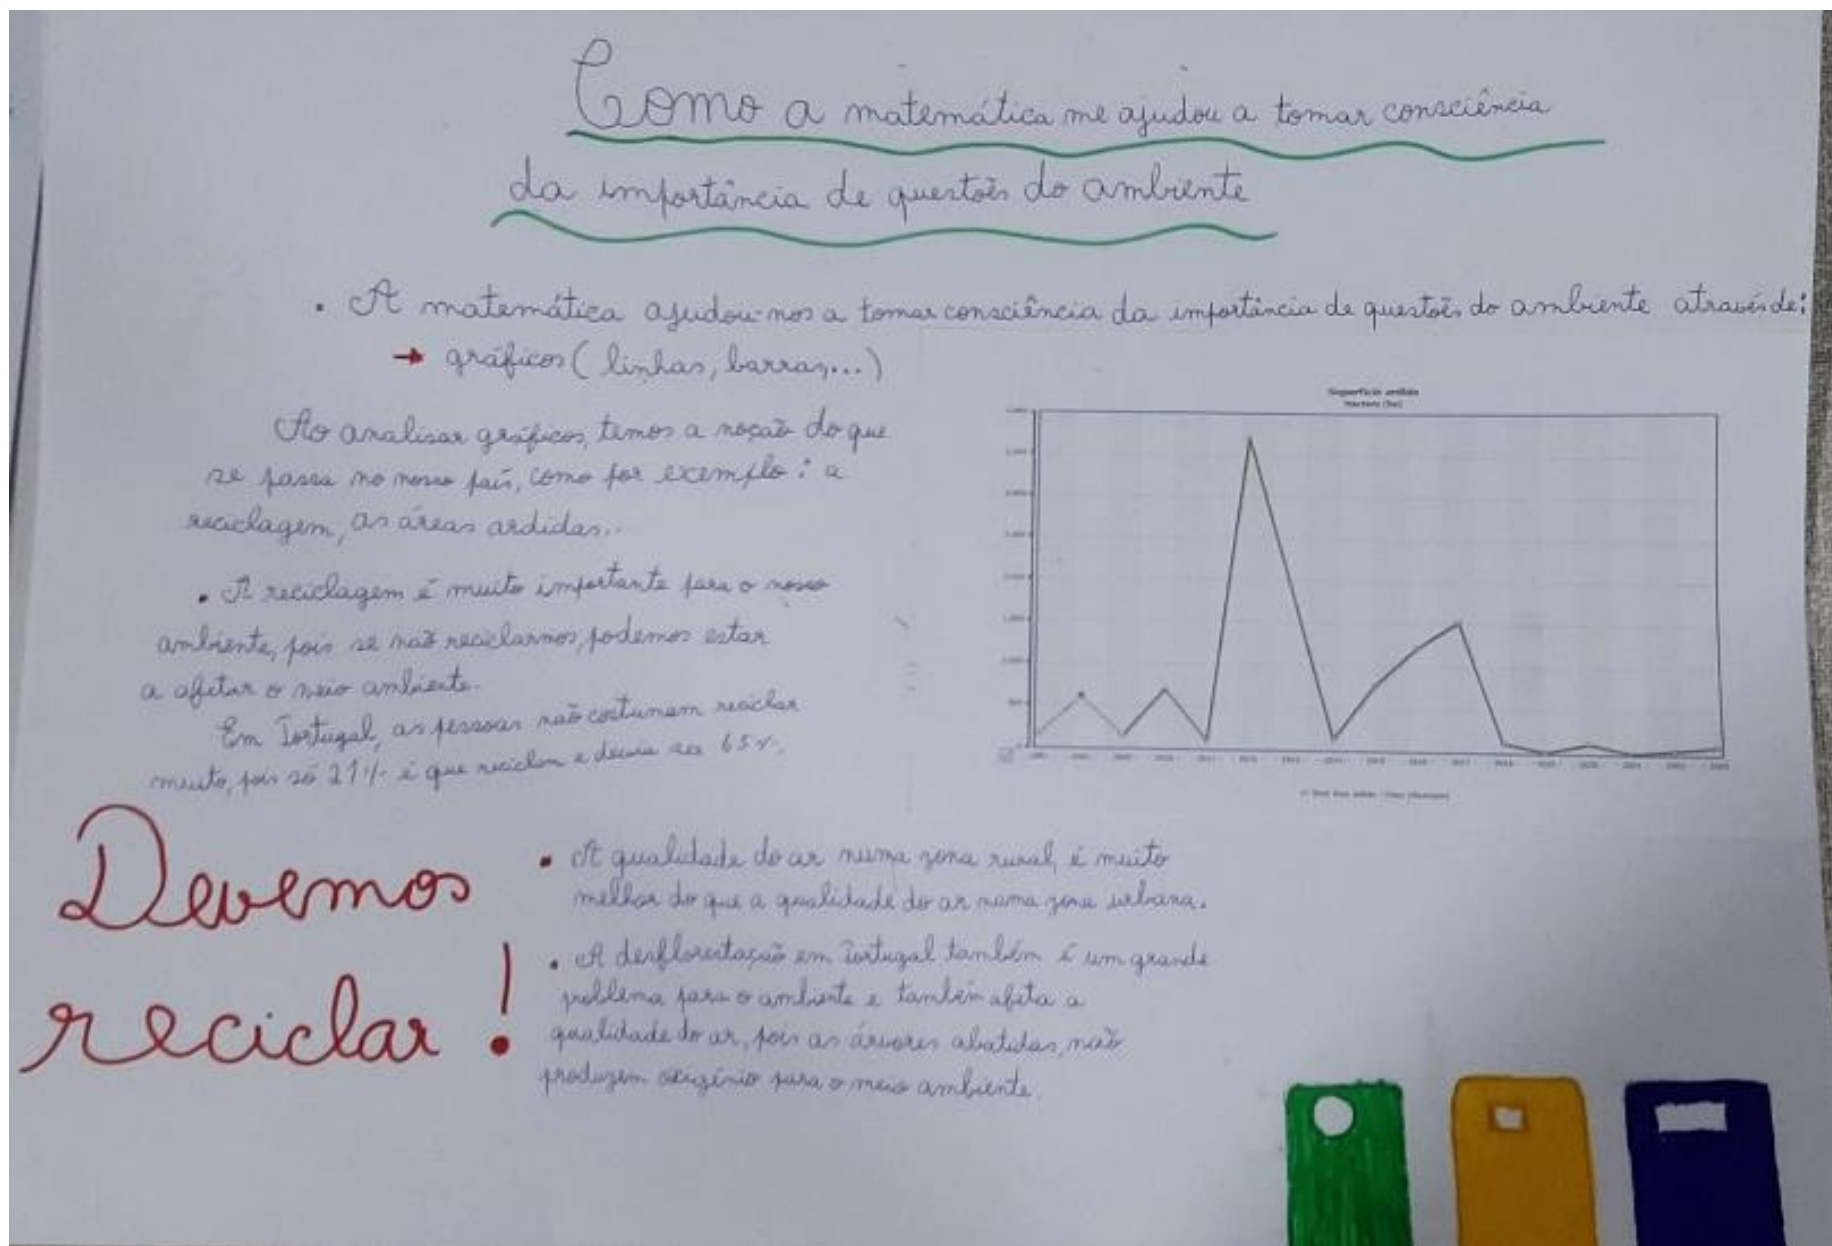 Como a matemática me ajudou a tomar consciência
da importância de questões do ambiente
• A matemática ajudou-nos a tomar consciência da importância de questões do ambiente através de:
→ gráficos ( linhas, barras,...)
Ao analisar gráficos, temos a noção do que
se passa no nosso país, como por exemplo: a
reciclagem, as áreas ardidas...
Superfície ardida
Hectare (ha)
• A reciclagem é muito importante para o nosso
ambiente, pois se não reciclarmos, podemos estar
a afetar o meio ambiente.
Em Portugal, as pessoas não costumam reciclar
muito, pois só 21% é que reciclam e devia ser 65%.
Devemos
reciclar !
• A qualidade do ar numa zona rural, é muito
melhor do que a qualidade do ar numa zona urbana.
• A desflorestação em Portugal também é um grande
problema para o ambiente e também afeta a
qualidade do ar, pois as árvores abatidas, não
produzem oxigénio para o meio ambiente.